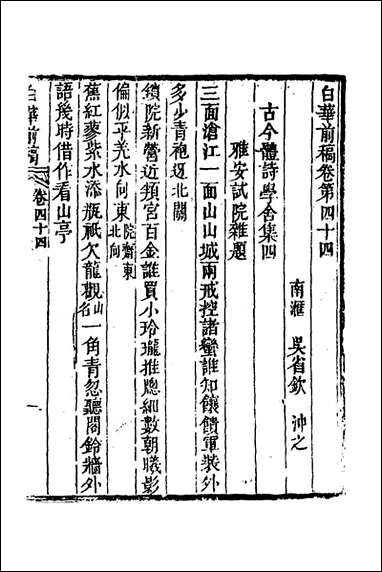 白華前稿卷第四十四
南滙 吳省欽 沖之
古今體詩學舍集四
雅安試院雜題
三面滄江一面山山城兩戒控諸蠻誰知饟饋軍裝外
多少青袍趂北關
鎖院新營近頖宮百金誰買小玲瓏推牕細數朝曦影
偏似平羌水向東院齋東北向
蕉紅蓼紫水添瓶祇欠龍觀山名一角青忽聽閣鈴牆外
語幾時借作看山亭
白華前稿 卷四十四 一